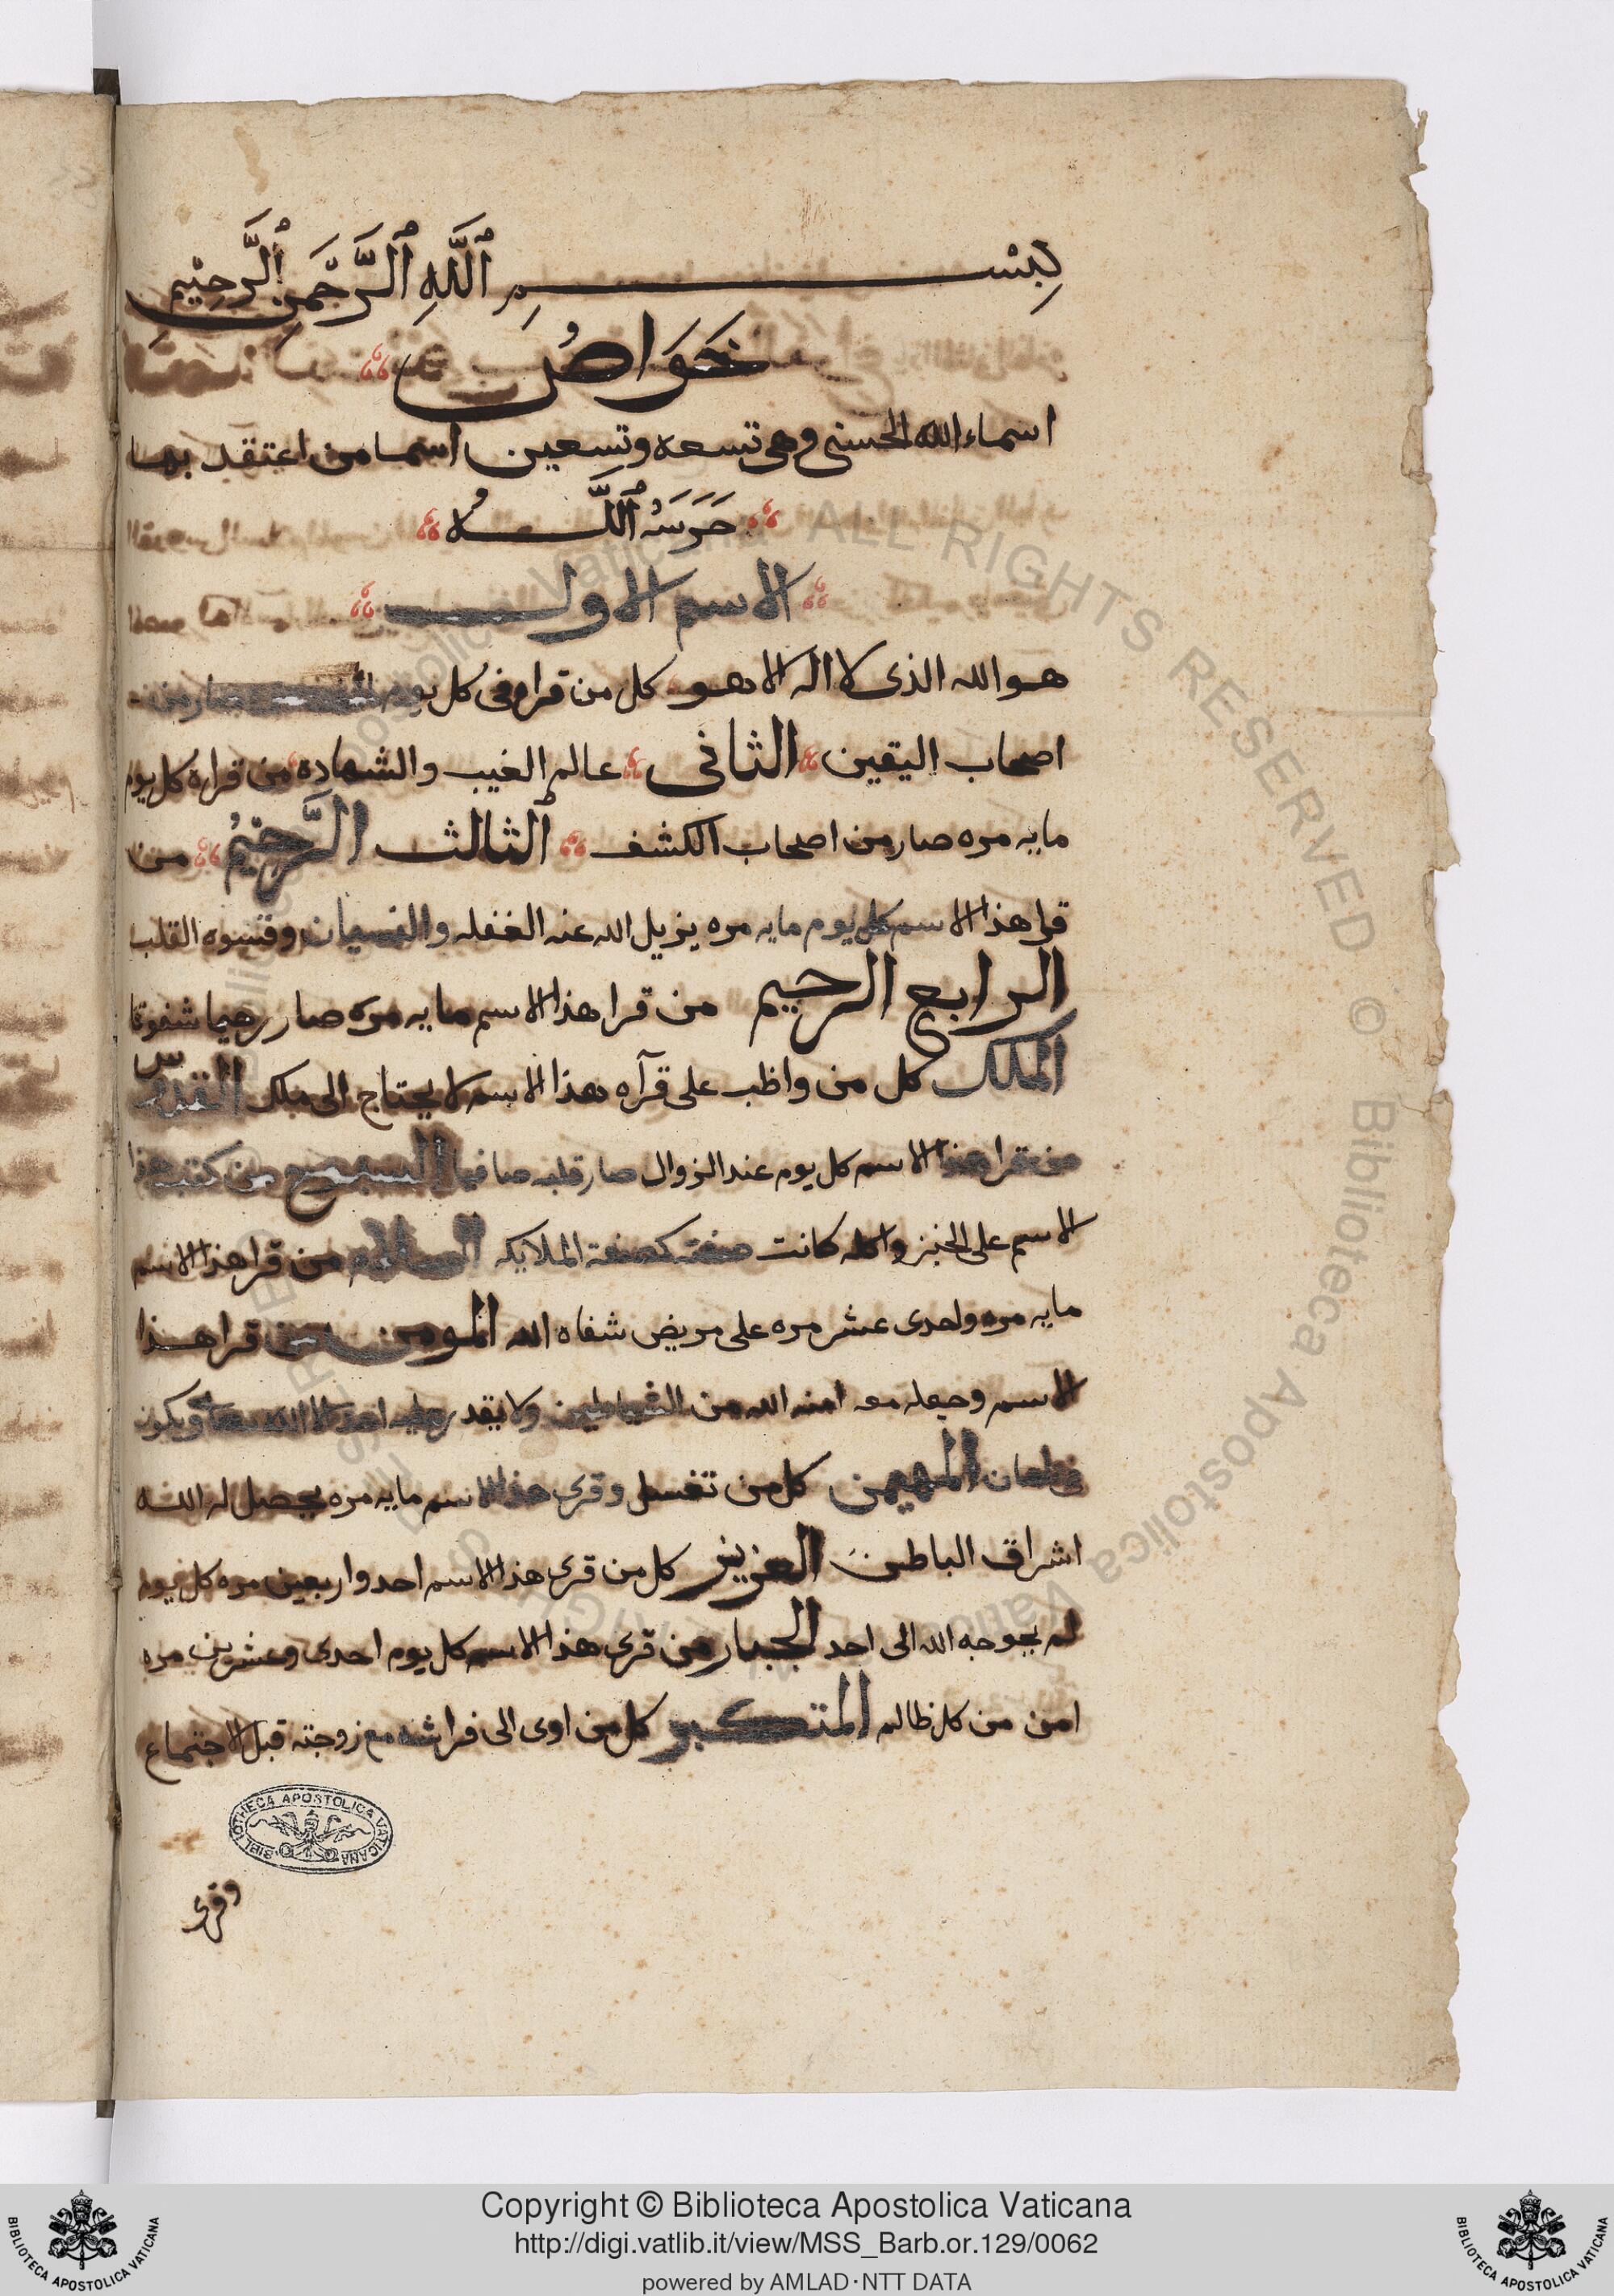 بِسْمِ ٱللَّهِ ٱلرَّحْمَنِ ٱلرَّحِيْمِ
خَوَاصُ
اسماء الله الحسنى وهى تسعه وتسعين اسما من اعتقد بها
حَرَسَهُ ٱللَّهُ
الاسم الاول
هو الله الذى لا اله الا هو كل من قراه فى كل يوم صار من
اصحاب اليقين الثانى عالم الغيب والشهاده من قراه كل يوم
مايه مره صار من اصحاب الكشف الثالث الرَّحِيْمُ من
قرا هذا الاسم كل يوم مايه مره يزيل الله عنه الغفله والنسيان وقسوه القلب
الرابع الرحيم من قرا هذا الاسم مايه مره صار رحيما شفوقا
الملك كل من واظب على قرآه هذا الاسم لا يحتاج الى ملك القدوس
من قرا هذا الاسم كل يوم عند الزوال صار قلبه صافيا السبوح من كتب هذا
الاسم على الخبز واكله كانت صفته كصفة الملايكه السلام من قرا هذا الاسم
مايه مره واحدى عشر مره على مريض شفاه الله المومن من قرا هذا
الاسم وجعله معه امنه الله من الشياطين ولا يقدر عليه احد الا الله ويكون
المهيمن كل من تغسل وقرى هذا الاسم مايه مره يحصل له الله
اشراق الباطن العزيز كل من قرى هذا الاسم احد واربعين مره كل يوم
لم يحوجه الله الى احد الجبار من قرى هذا الاسم كل يوم احدى وعشرين مره
امن من كل ظالم المتكبر كل من اوى الى فراشه مع زوجته قبل الاجتماع
BIBLIOTHECA APOSTOLICA VATICANA
وقرى
Copyright © Biblioteca Apostolica Vaticana
http://digi.vatlib.it/view/MSS_Barb.or.129/0062
powered by AMLAD·NTT DATA
BIBLIOTECA APOSTOLICA VATICANA
BIBLIOTECA APOSTOLICA VATICANA
ALL RIGHTS RESERVED © Biblioteca Apostolica Vaticana